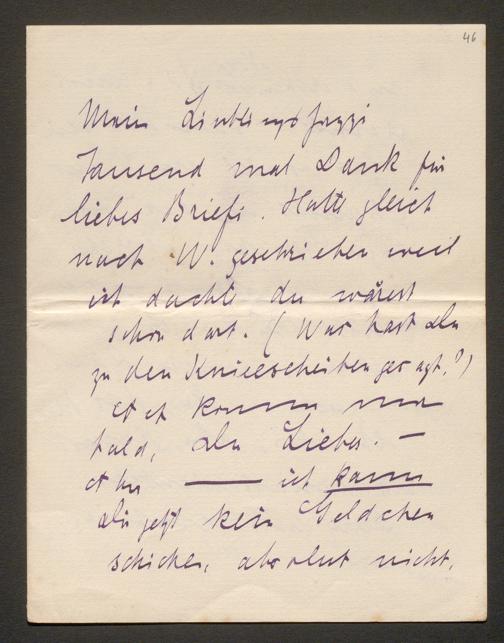 46
Mein Lieblingsfazzi
Tausend mal Dank für
liebes Briefi. Hatte gleich
nach W. geschrieben weil
ich dachte du wärest
schon dort. (Was hast du
zu den Kniescheiben gesagt?)
Ach komm nur
bald, du Liebes. —
Aber —— ich kann
dir jetzt kein Geldchen
schicken, absolut nicht,